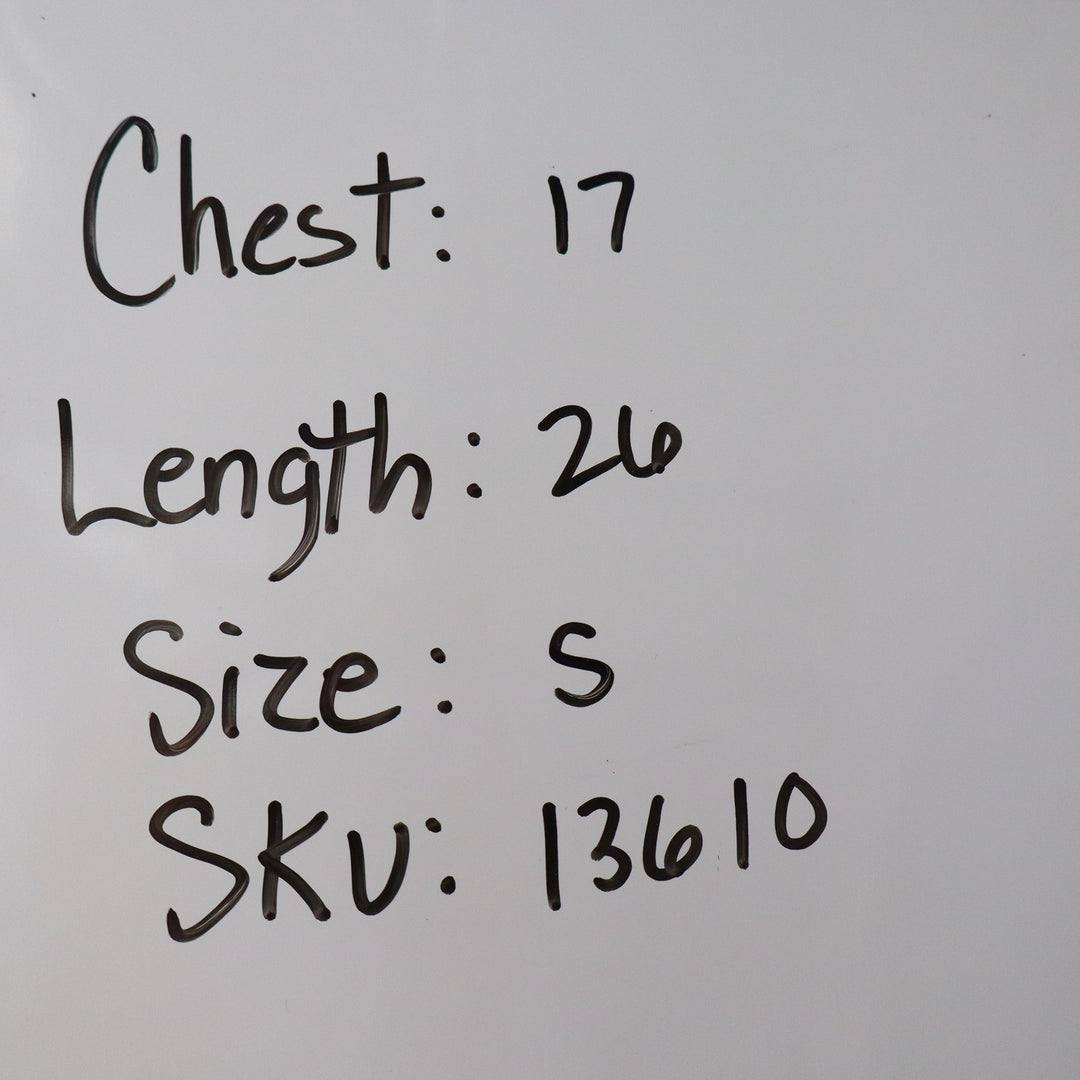 Chest: 17
Length: 26
Size: S
SKU: 13610